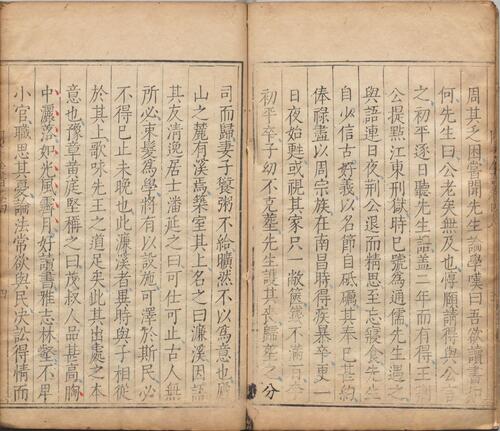 周其乏困嘗聞先生論學嘆曰吾欲讀書如
何先生曰公老矣無及也惇願請得與公言
之初平逐日聽先生語蓋二年而有得王荊
公提點江東刑獄時已號為通儒先生遇之
與語連日夜荊公退而精思至忘寢食先生
自少信古好義以名節自砥礪其奉已甚約
俸祿盡以周宗族在南昌時得疾暴卒更一
日夜始甦或視其家只一敝篋錢不滿百李
初平卒子幼不克葬先生護其喪歸葬之分
司而歸妻子饘粥不給曠然不以爲意也廬
山之麓有溪焉築室其上名之曰濂溪因語
其友清逸居士潘延之曰可仕可止古人無
所必束髮爲學將有以設施可澤於斯民必
不得已止未晚也此濂溪者異時與子相從
於其上歌咏先王之道足矣此其出處之本
意也豫章黃庭堅稱之曰茂叔人品甚高胸
中灑落如光風霽月好讀書雅志林壑不卑
小官職思其憂論法常欲與民決訟得情而